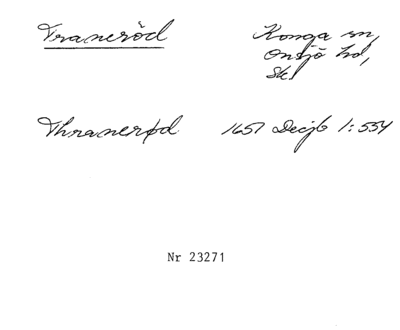 Traneröd Konga sn,
Onsjö hd,
Sk
Thranerød 1657 Decjb 1:554
Nr 23271